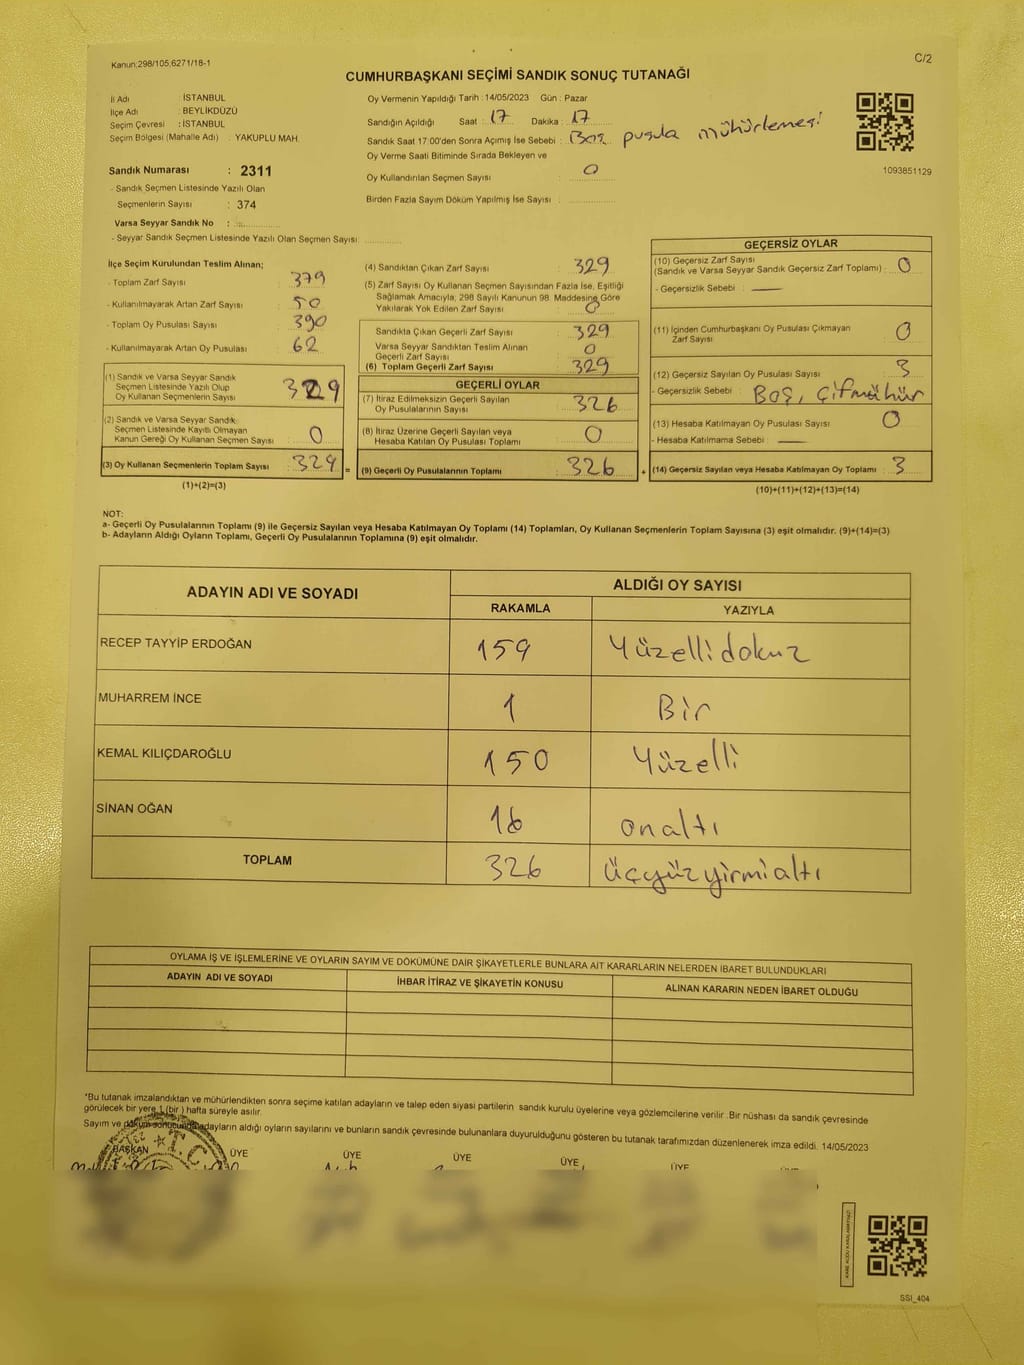 Kanun:298/105,6271/18-1
C/2
CUMHURBAŞKANI SEÇİMİ SANDIK SONUÇ TUTANAĞI
İl Adı : İSTANBUL
İlçe Adı : BEYLİKDÜZÜ
Seçim Çevresi : İSTANBUL
Seçim Bölgesi (Mahalle Adı) : YAKUPLU MAH.
Sandık Numarası : 2311
- Sandık Seçmen Listesinde Yazılı Olan
Seçmenlerin Sayısı : 374
Varsa Seyyar Sandık No :
- Seyyar Sandık Seçmen Listesinde Yazılı Olan Seçmen Sayısı
Oy Vermenin Yapıldığı Tarih : 14/05/2023 Gün : Pazar
Sandığın Açıldığı Saat : 17 Dakika : 17
Sandık Saat 17:00'den Sonra Açımış İse Sebebi : Boş pusula mühürlemesi
Oy Verme Saati Bitiminde Sırada Bekleyen ve
Oy Kullandırılan Seçmen Sayısı : 0
Birden Fazla Sayım Döküm Yapılmış İse Sayısı :
1093851129
İlçe Seçim Kurulundan Teslim Alınan;
- Toplam Zarf Sayısı : 379
- Kullanılmayarak Artan Zarf Sayısı : 50
- Toplam Oy Pusulası Sayısı : 390
- Kullanılmayarak Artan Oy Pusulası : 62
(1) Sandık ve Varsa Seyyar Sandık
Seçmen Listesinde Yazılı Olup
Oy Kullanan Seçmenlerin Sayısı : 329
(2) Sandık ve Varsa Seyyar Sandık
Seçmen Listesinde Kayıtlı Olmayan
Kanun Gereği Oy Kullanan Seçmen Sayısı : 0
(3) Oy Kullanan Seçmenlerin Toplam Sayısı : 329
(1)+(2)=(3)
(4) Sandıktan Çıkan Zarf Sayısı : 329
(5) Zarf Sayısı Oy Kullanan Seçmen Sayısından Fazla İse, Eşitliği
Sağlamak Amacıyla; 298 Sayılı Kanunun 98. Maddesine Göre
Yakılarak Yok Edilen Zarf Sayısı : 0
Sandıkta Çıkan Geçerli Zarf Sayısı : 329
Varsa Seyyar Sandıktan Teslim Alınan
Geçerli Zarf Sayısı : 0
(6) Toplam Geçerli Zarf Sayısı : 329
GEÇERLİ OYLAR
(7) İtiraz Edilmeksizin Geçerli Sayılan
Oy Pusulalarının Sayısı : 326
(8) İtiraz Üzerine Geçerli Sayılan veya
Hesaba Katılan Oy Pusulası Toplamı : 0
= (9) Geçerli Oy Pusulalarının Toplamı : 326
GEÇERSİZ OYLAR
(10) Geçersiz Zarf Sayısı
(Sandık ve Varsa Seyyar Sandık Geçersiz Zarf Toplamı) : 0
- Geçersizlik Sebebi : —
(11) İçinden Cumhurbaşkanı Oy Pusulası Çıkmayan
Zarf Sayısı : 0
(12) Geçersiz Sayılan Oy Pusulası Sayısı : 3
- Geçersizlik Sebebi : Boş, Çiftmühür
(13) Hesaba Katılmayan Oy Pusulası Sayısı : 0
- Hesaba Katılmama Sebebi : —
+ (14) Geçersiz Sayılan veya Hesaba Katılmayan Oy Toplamı : 3
(10)+(11)+(12)+(13)=(14)
NOT:
a- Geçerli Oy Pusulalarının Toplamı (9) ile Geçersiz Sayılan veya Hesaba Katılmayan Oy Toplamı (14) Toplamları, Oy Kullanan Seçmenlerin Toplam Sayısına (3) eşit olmalıdır. (9)+(14)=(3)
b- Adayların Aldığı Oyların Toplamı, Geçerli Oy Pusulalarının Toplamına (9) eşit olmalıdır.
ADAYIN ADI VE SOYADI ALDIĞI OY SAYISI
RAKAMLA YAZIYLA
RECEP TAYYİP ERDOĞAN 159 Yüzellidokuz
MUHARREM İNCE 1 Bir
KEMAL KILIÇDAROĞLU 150 Yüzelli
SİNAN OĞAN 16 onaltı
TOPLAM 326 üçyüzyirmialtı
OYLAMA İŞ VE İŞLEMLERİNE VE OYLARIN SAYIM VE DÖKÜMÜNE DAİR ŞİKAYETLERLE BUNLARA AİT KARARLARIN NELERDEN İBARET BULUNDUKLARI
ADAYIN ADI VE SOYADI İHBAR İTİRAZ VE ŞİKAYETİN KONUSU ALINAN KARARIN NEDEN İBARET OLDUĞU
*Bu tutanak imzalandıktan ve mühürlendikten sonra seçime katılan adayların ve talep eden siyasi partilerin sandık kurulu üyelerine veya gözlemcilerine verilir. Bir nüshası da sandık çevresinde
görülecek bir yere 1 (bir) hafta süreyle asılır.
Sayım ve döküm sonucunda adayların aldığı oyların sayılarını ve bunların sandık çevresinde bulunanlara duyurulduğunu gösteren bu tutanak tarafımızdan düzenlenerek imza edildi. 14/05/2023
BAŞKAN ÜYE ÜYE ÜYE ÜYE ÜYE
T.C.
SSI_404